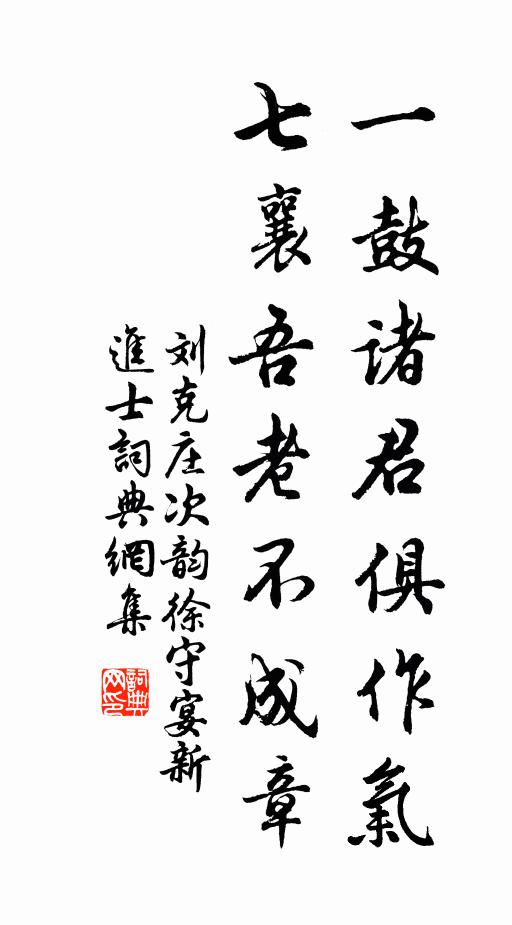 一鼓诸君俱作氣
七襄吾老不成章
刘克庄次韵徐守宴新
進士詞典網集
詞典网印